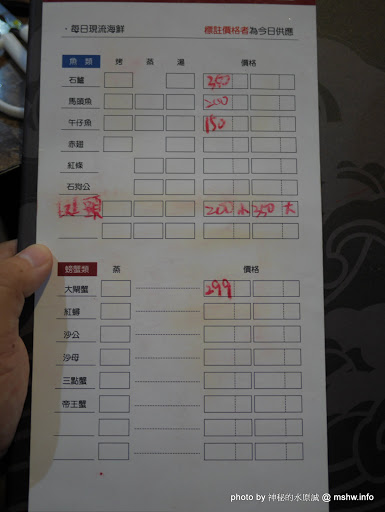 ·每日現流海鮮 標註價格者為今日供應
魚類 烤 蒸 湯 價格
石鱸 350
馬頭魚 200
午仔魚 150
赤翅
紅條
石狗公
頭 200 小 350 大
螃蟹類 蒸 價格
大閘蟹 299
紅蟳
沙公
沙母
三點蟹
帝王蟹
photo by 神秘的水原誠 @ mshw.info